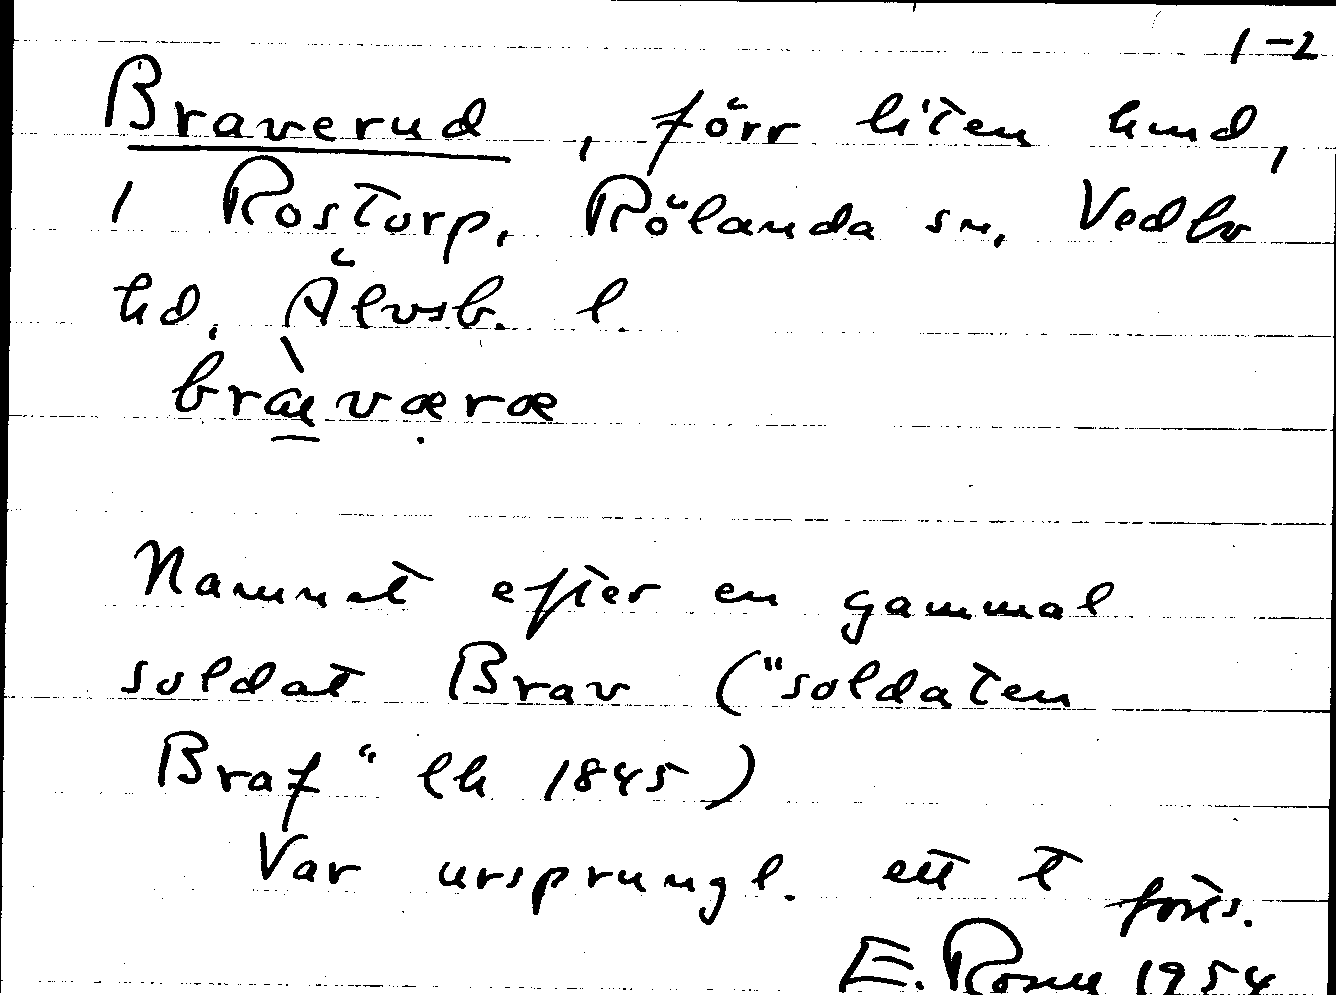 1-2
Braverud, förr liten hmd,
i Rostorp, Rölanda sn, Vedbo
hd, Älvsb. l.
bræ̀værœ
Namnet efter en gammal
soldat Brav ("soldaten
Braf" lh 1845)
Var ursprungl. ett t
forts.
E. 1954